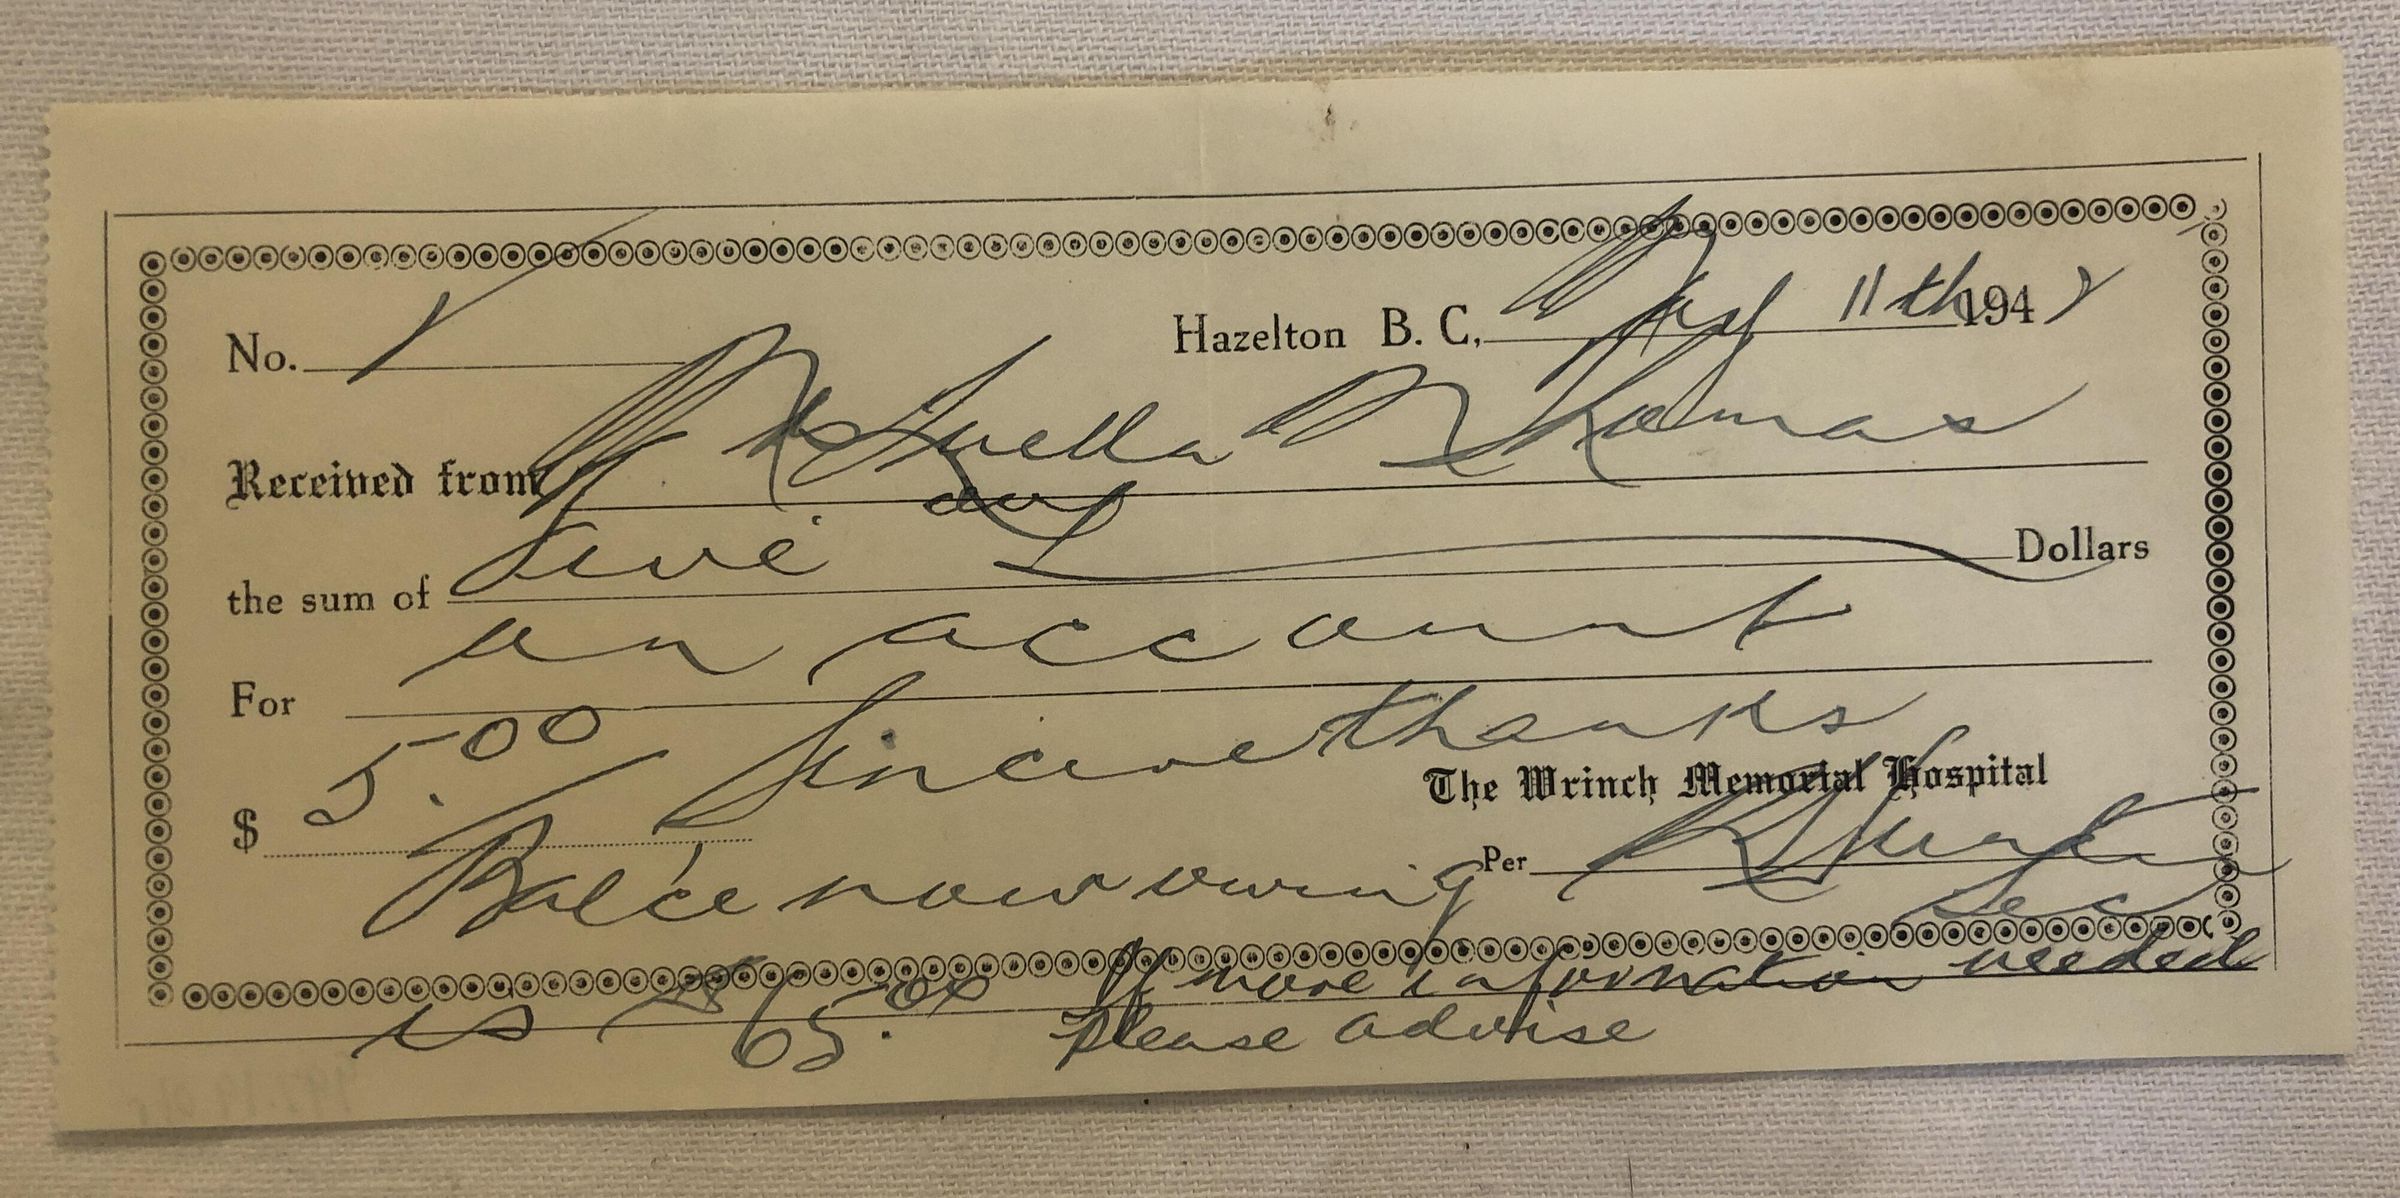 No. 1 Hazelton B. C., May 11th 1942
Received from Mrs Luella M Thomas
the sum of Five and Dollars
For on account
$ 5.00 Sincere thanks
The Wrinch Memorial Hospital
Bal'ce now owing Per
Sec
is $65.00 If more information needed
please advise